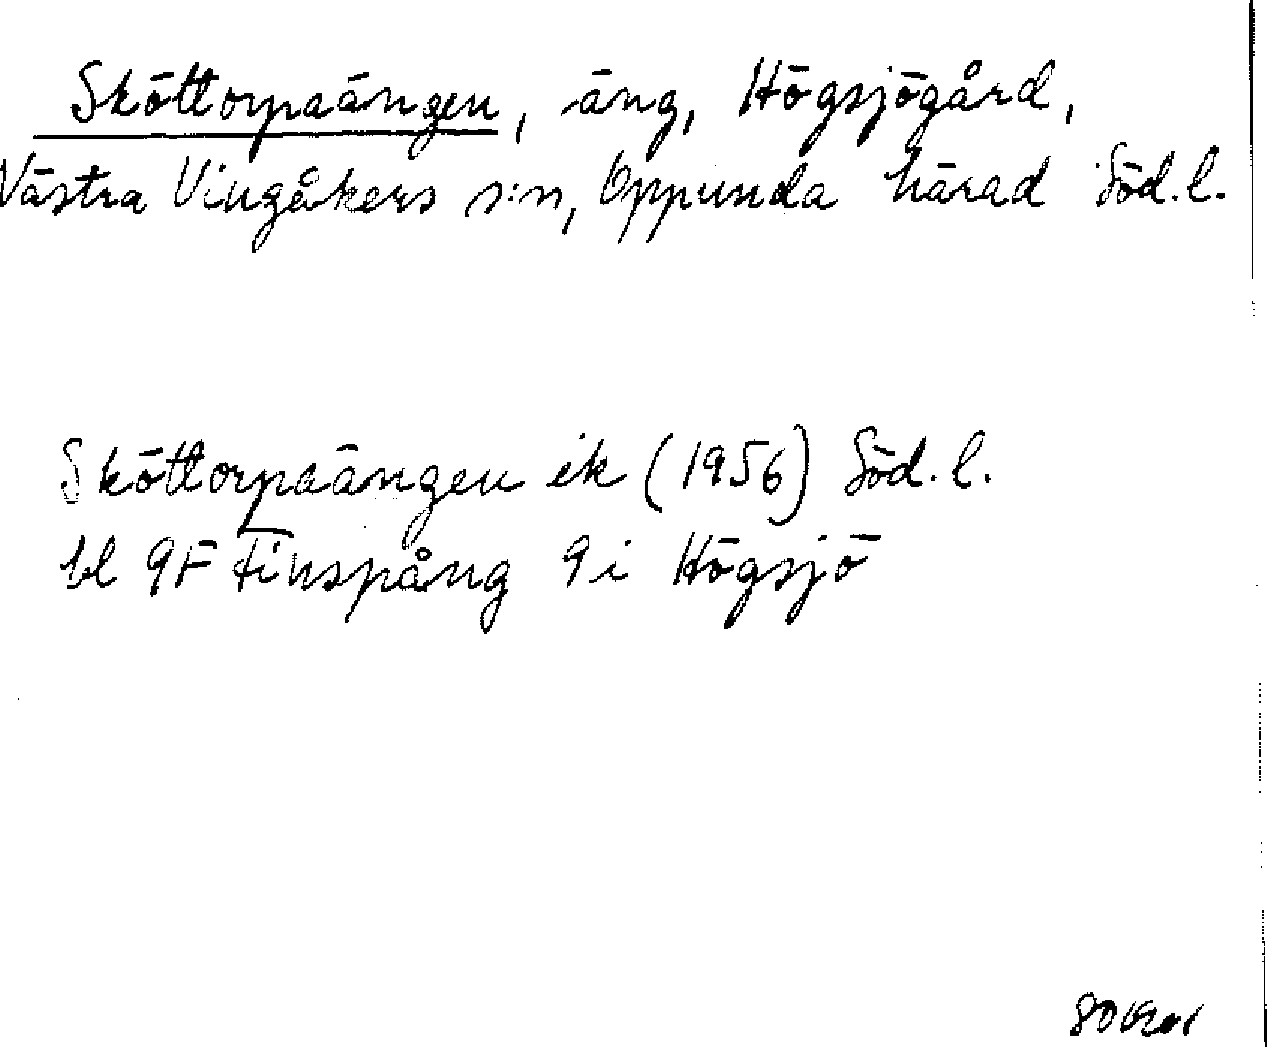 Sköttorpaängen, äng, Högsjögård,
Västra Vingåkers s:n, Oppunda härad Söd.l.
Sköttorpaängen ek (1956) Söd. l.
bl 9F Finspång 9i Högsjö